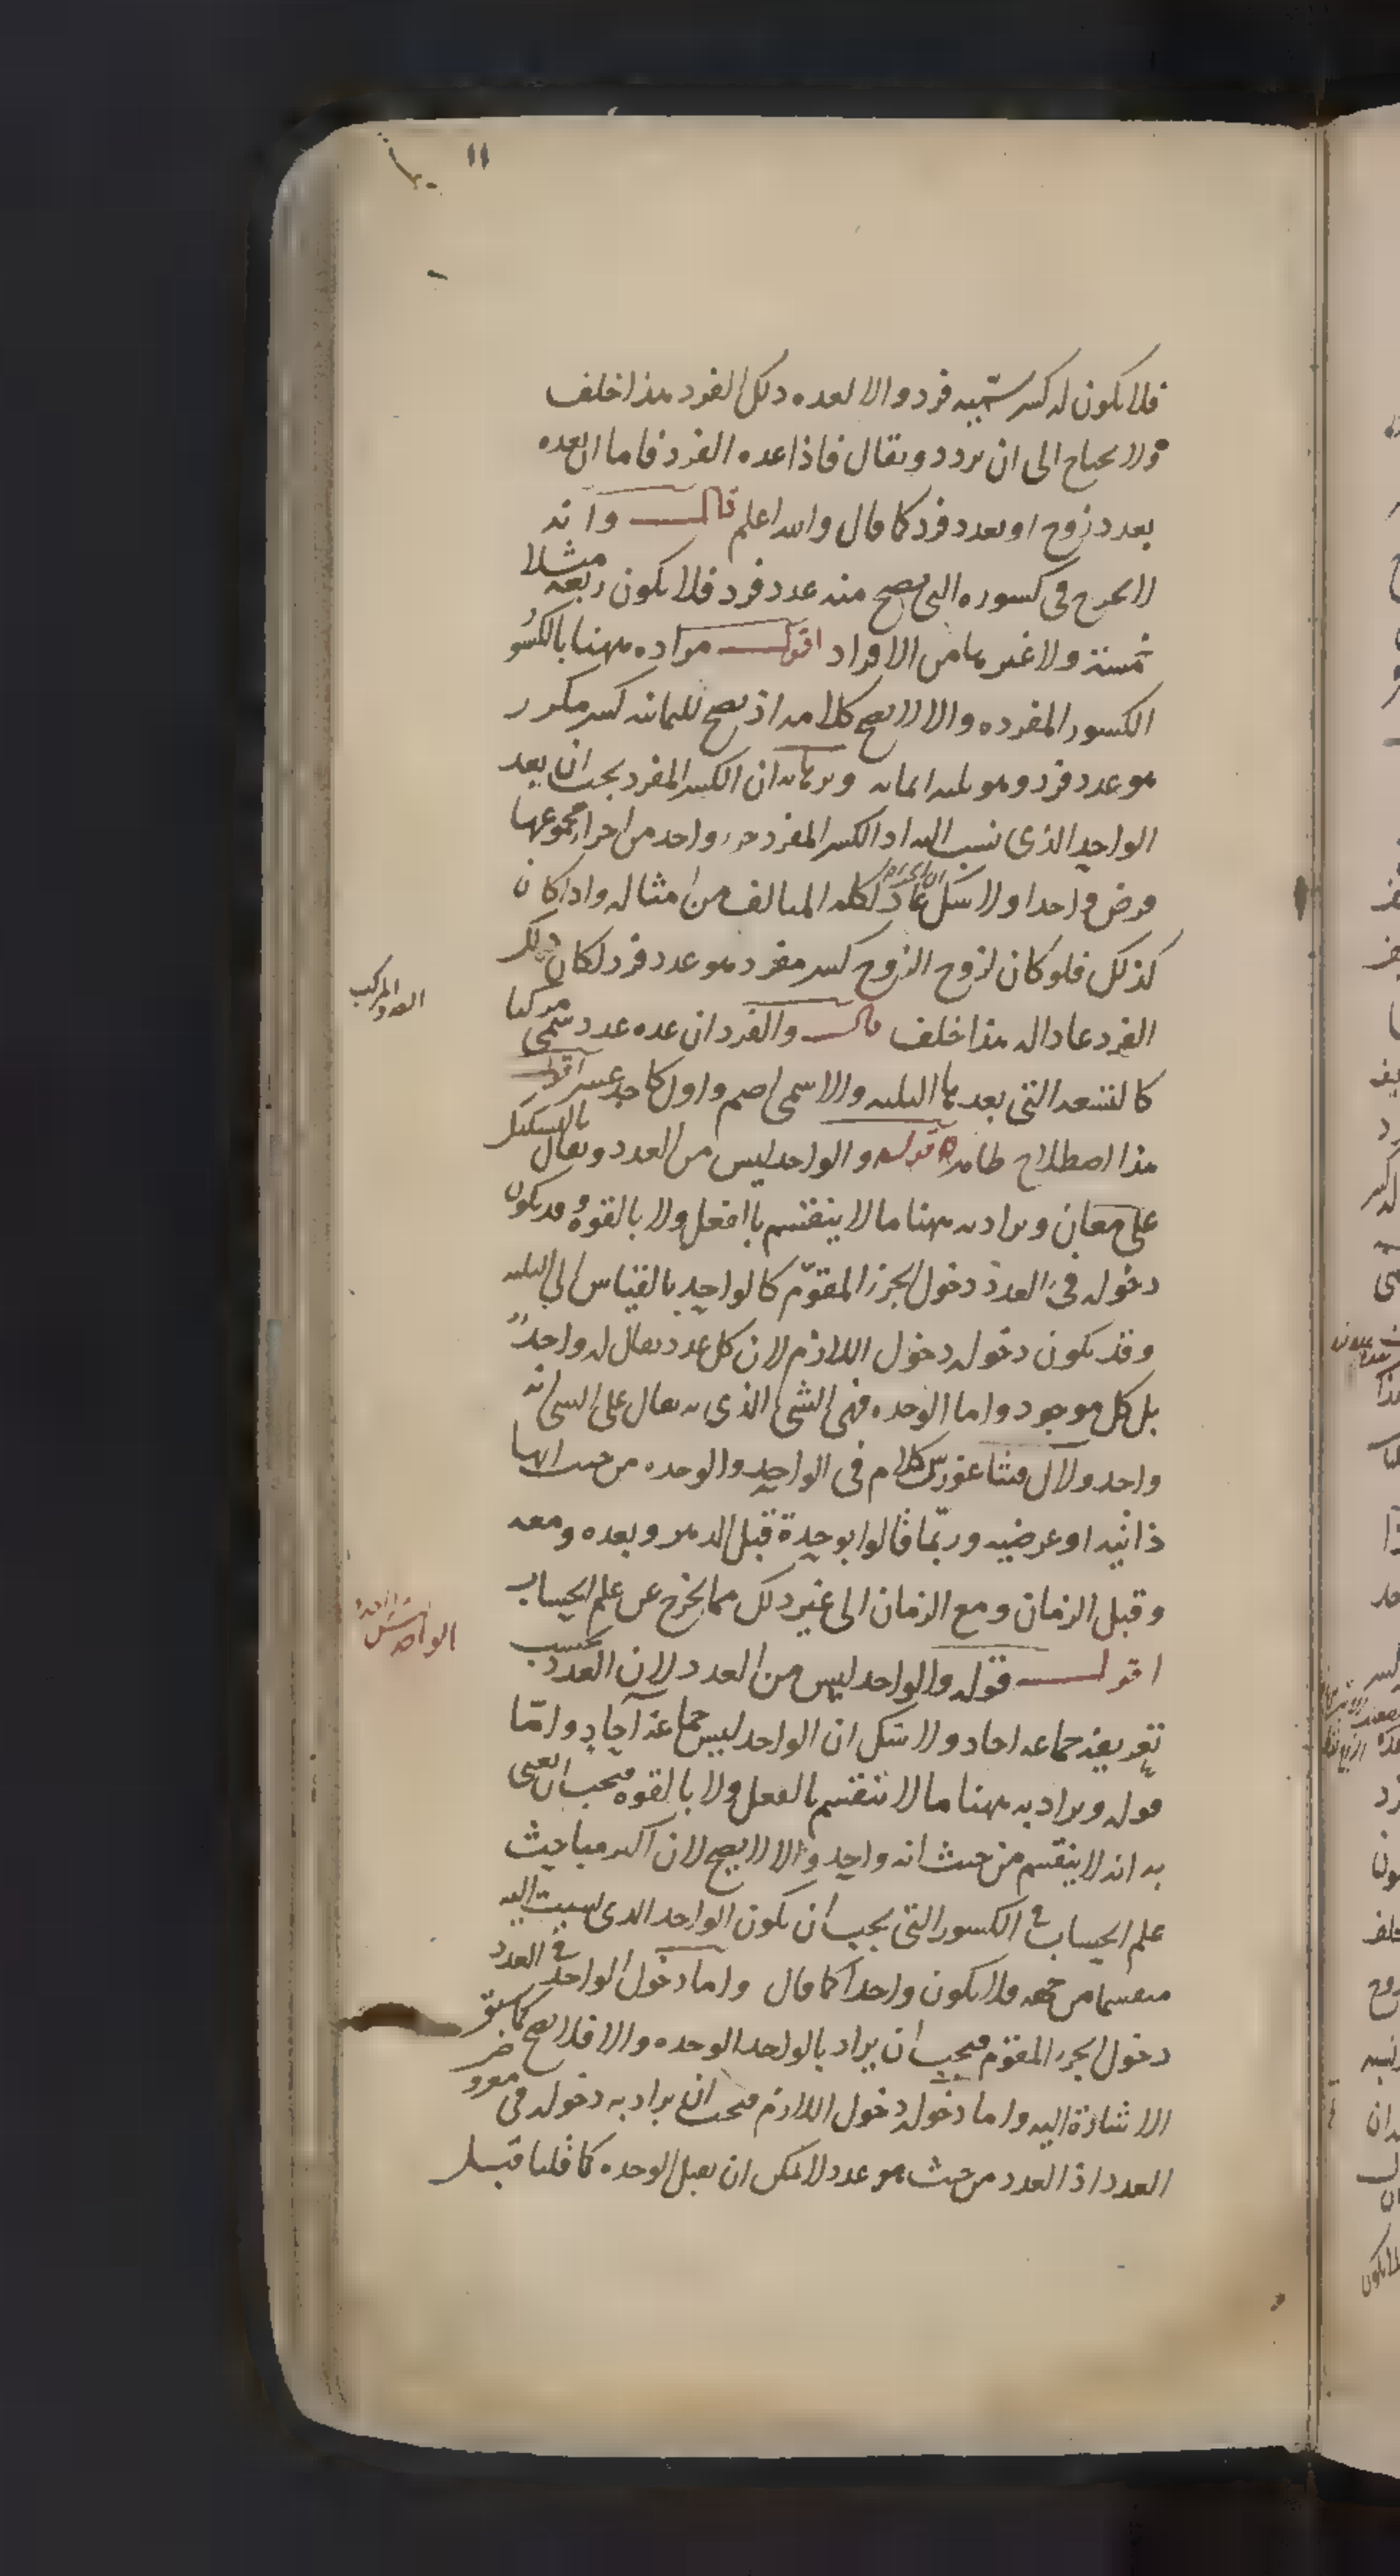 ١١
فلا يكون له كسر سميه فرد والا لعده ذلك الفرد هذا خلف
ولا يحتاج الى ان يردد ويقال فاذا عده الفرد فاما ان يعده
بعدد زوج او بعدد فرد كما قال والله اعلم قال وانه
لا يخرج في كسوره التي تصح منه عدد فرد فلا يكون ربعه مثلا
خمسة ولا غيرها من الافراد اقول مراده ههنا بالكسور
الكسور المفرده والا لا يصح كلامه اذ يصح للثمانيه كسر مكرر
هو عدد فرد وهو ثلثه اثمانه وبرهانه ان الكسر المفرد يجب ان يعد
الواحد الذي نسب اليه اذ الكسر المفرد جزء واحد من اجزاء مجموعها
فرض واحدا ولا شك عاد لكله المتالف من امثاله واذا كان
كذلك فلو كان لزوج الزوج كسر مفرد هو عدد فرد لكان ذلك
العدد المركب
الفرد عادا له هذا خلف قال والفرد ان عده عدد سمى مركبا
كالتسعه التي يعدها الثلثه والا سمى اصم واول كاحد عشر اقول
هذا اصطلاح ظاهر قوله والواحد ليس من العدد ويقال بالتشكيك
على معان ويراد به ههنا ما لا ينقسم بالفعل ولا بالقوه وقد يكون
دخوله في العدد دخول الجزء المقوّم كالواحد بالقياس الى الثلثه
وقد يكون دخوله دخول اللازم لان كل عدد يقال له واحد
بل كل موجود واما الوحده فهي الشي الذي به يقال على الشي انه
واحد ولآل فيثاغورس كلام في الواحد والوحده من حيث انها
ذاتيه او عرضيه وربّما قالوا بوحدة قبل الدهر وبعده ومعه
وقبل الزمان ومع الزمان الى غير ذلك مما يخرج عن علم الحساب
الواحد ليس
اقول قوله والواحد ليس من العدد لان العدد بحسب
تعريفه جماعه احاد ولا شك ان الواحد ليس جماعة آحاد وامّا
قوله ويراد به ههنا ما لا ينقسم بالفعل ولا بالقوه فيجب ان يعنى
به انه لا ينقسم من حيث انه واحد والا لا يصح لان اكثر مباحث
علم الحساب في الكسور التي يجب ان يكون الواحد الذي نسبت اليه
منقسما من جهه فلا يكون واحدا كما قال واما دخول الواحد في العدد
دخول الجزء المقوّم فيجب ان يراد بالواحد الوحده والا فلا يصح كما سبق
الاشارة اليه واما دخوله دخول اللازم فيجب ان يراد به دخوله في معروض
العدد اذ العدد من حيث هو عدد لا يمكن ان يقبل الوحده كما قلنا قبل